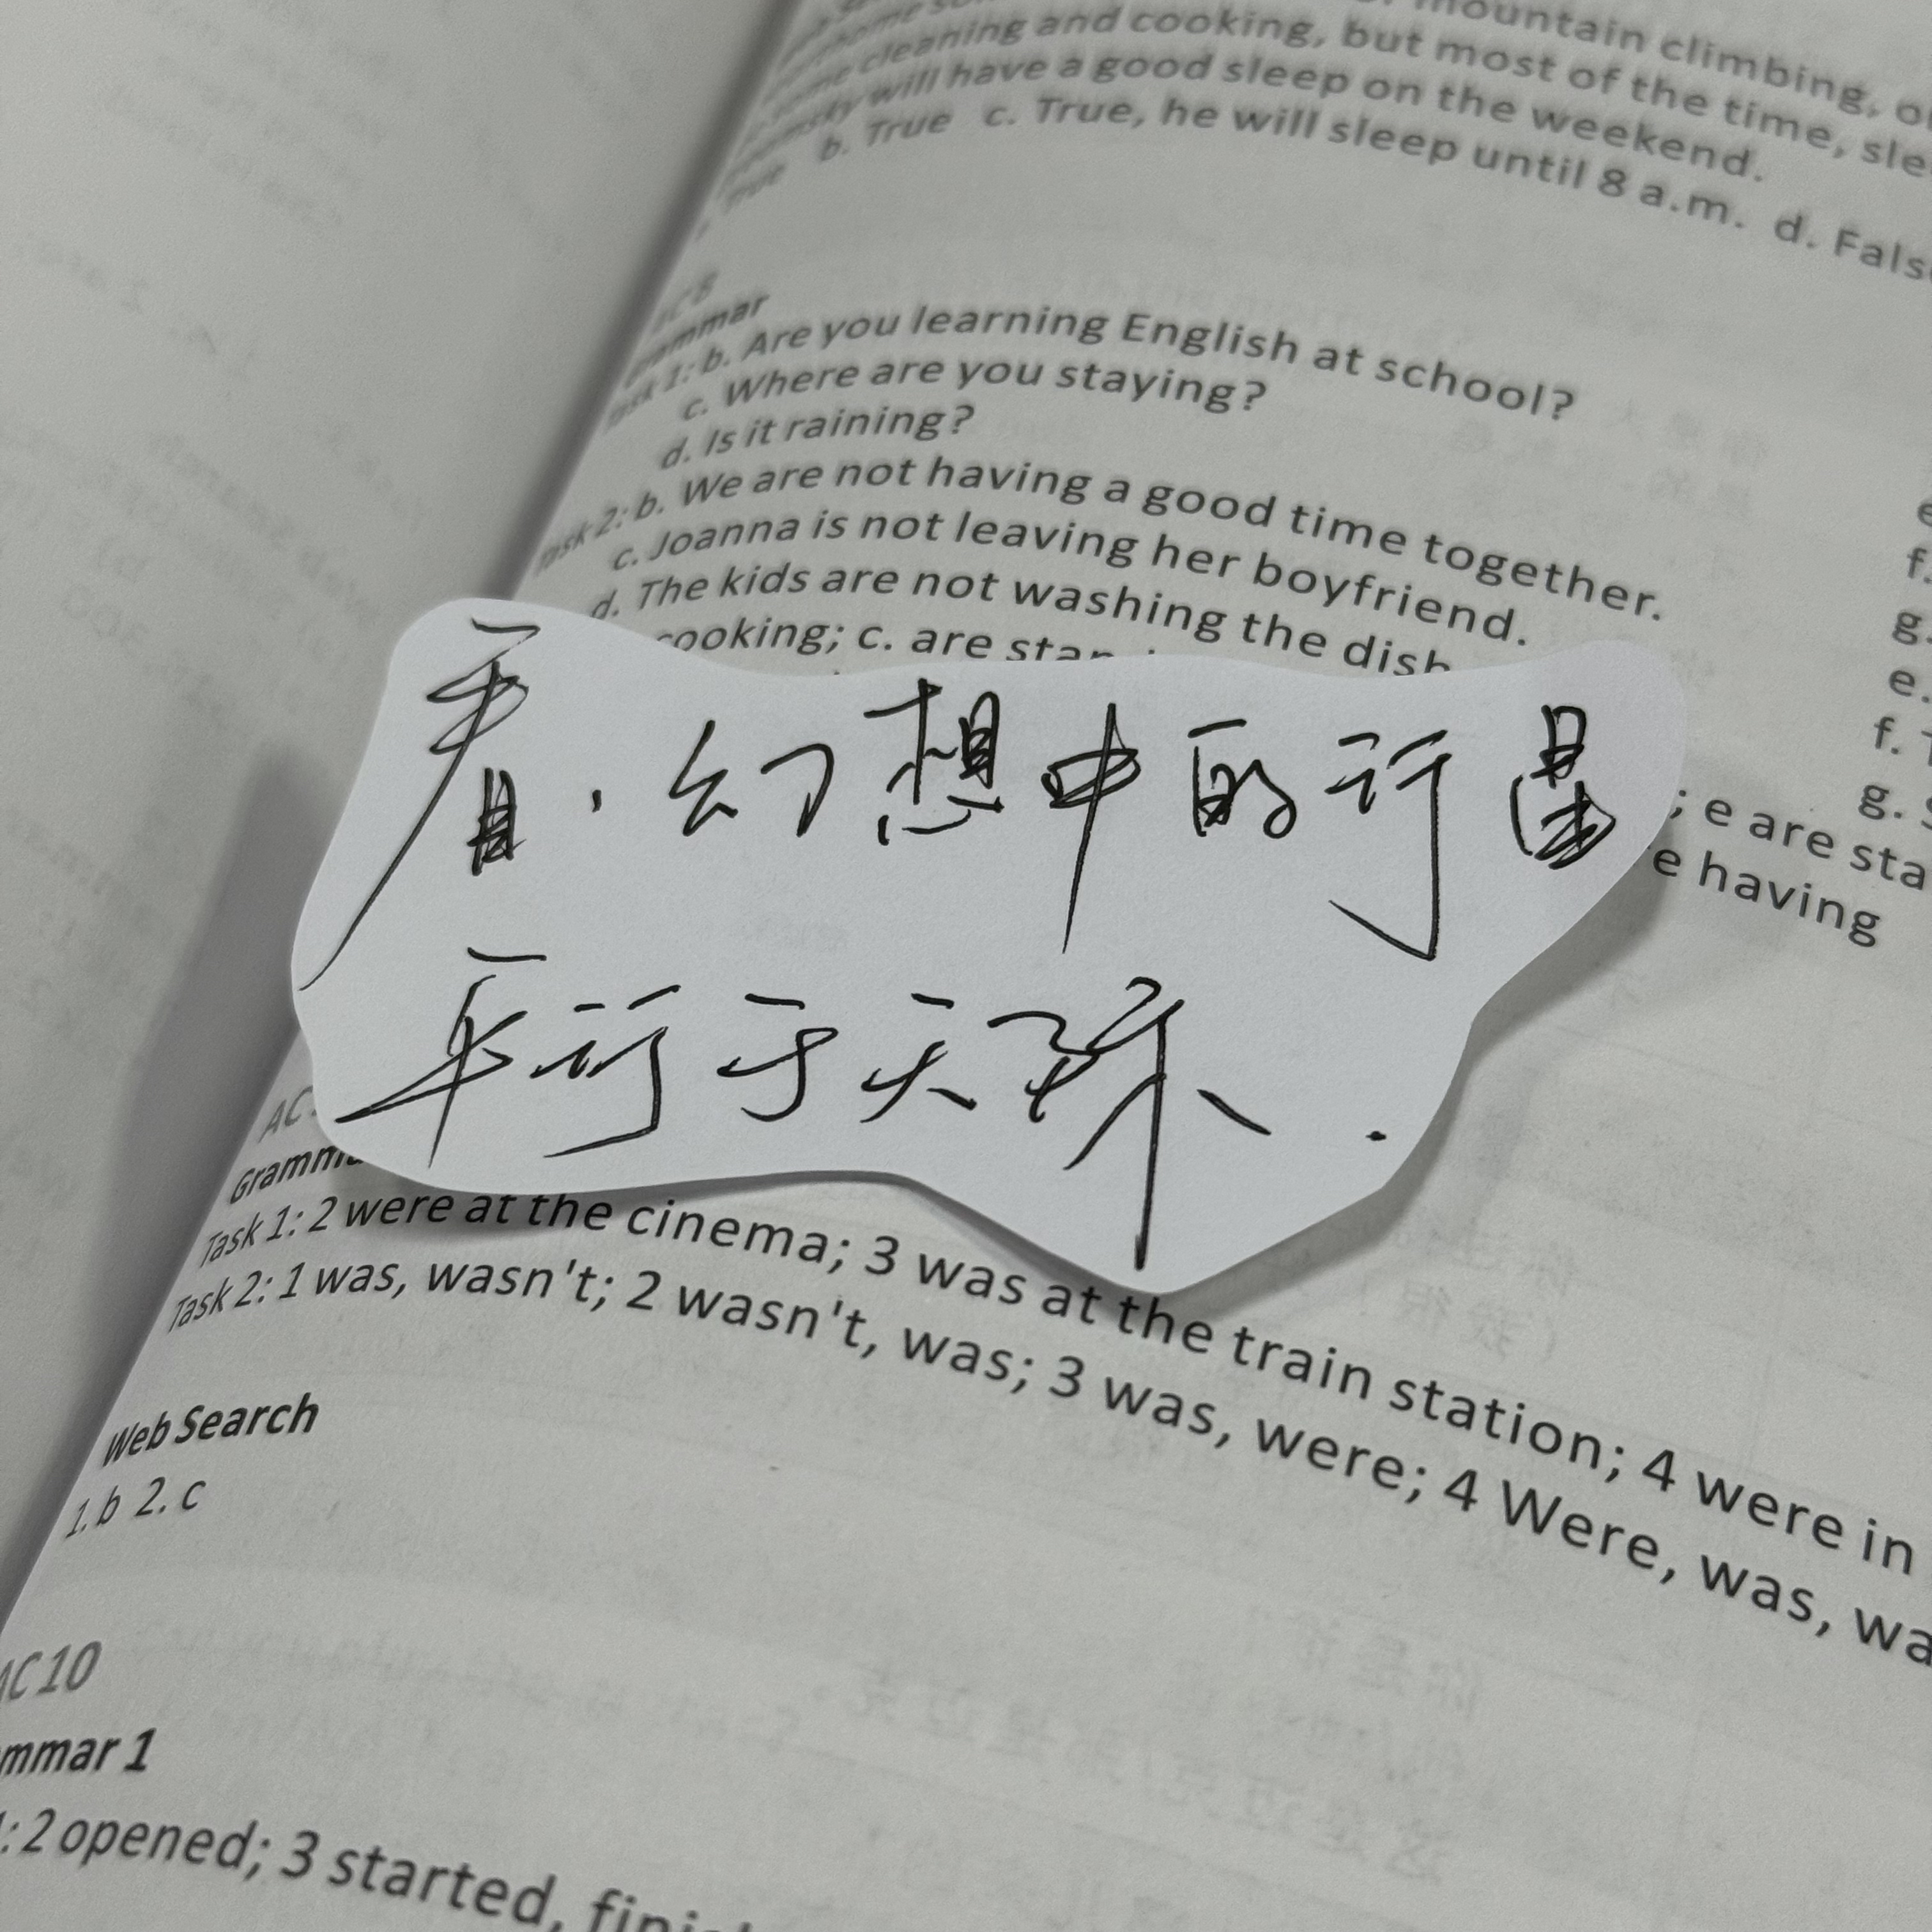 mountain climbing, o
some cleaning and cooking, but most of the time, sle
will have a good sleep on the weekend.
True b. True c. True, he will sleep until 8 a.m. d. Fals
Grammar
Task 1: b. Are you learning English at school?
c. Where are you staying?
d. Is it raining?
Task 2: b. We are not having a good time together.
c. Joanna is not leaving her boyfriend.
d. The kids are not washing the dish
cooking; c. are stan
e
f.
g.
e.
f. T
g. S
; e are sta
e having
看,幻想中的行星
平行于天际.
AC
Gramma
Task 1: 2 were at the cinema; 3 was at the train station; 4 were in
Task 2: 1 was, wasn't; 2 wasn't, was; 3 was, were; 4 Were, was, wa
Web Search
1. b 2. c
AC 10
mmar 1
: 2 opened; 3 started, finish